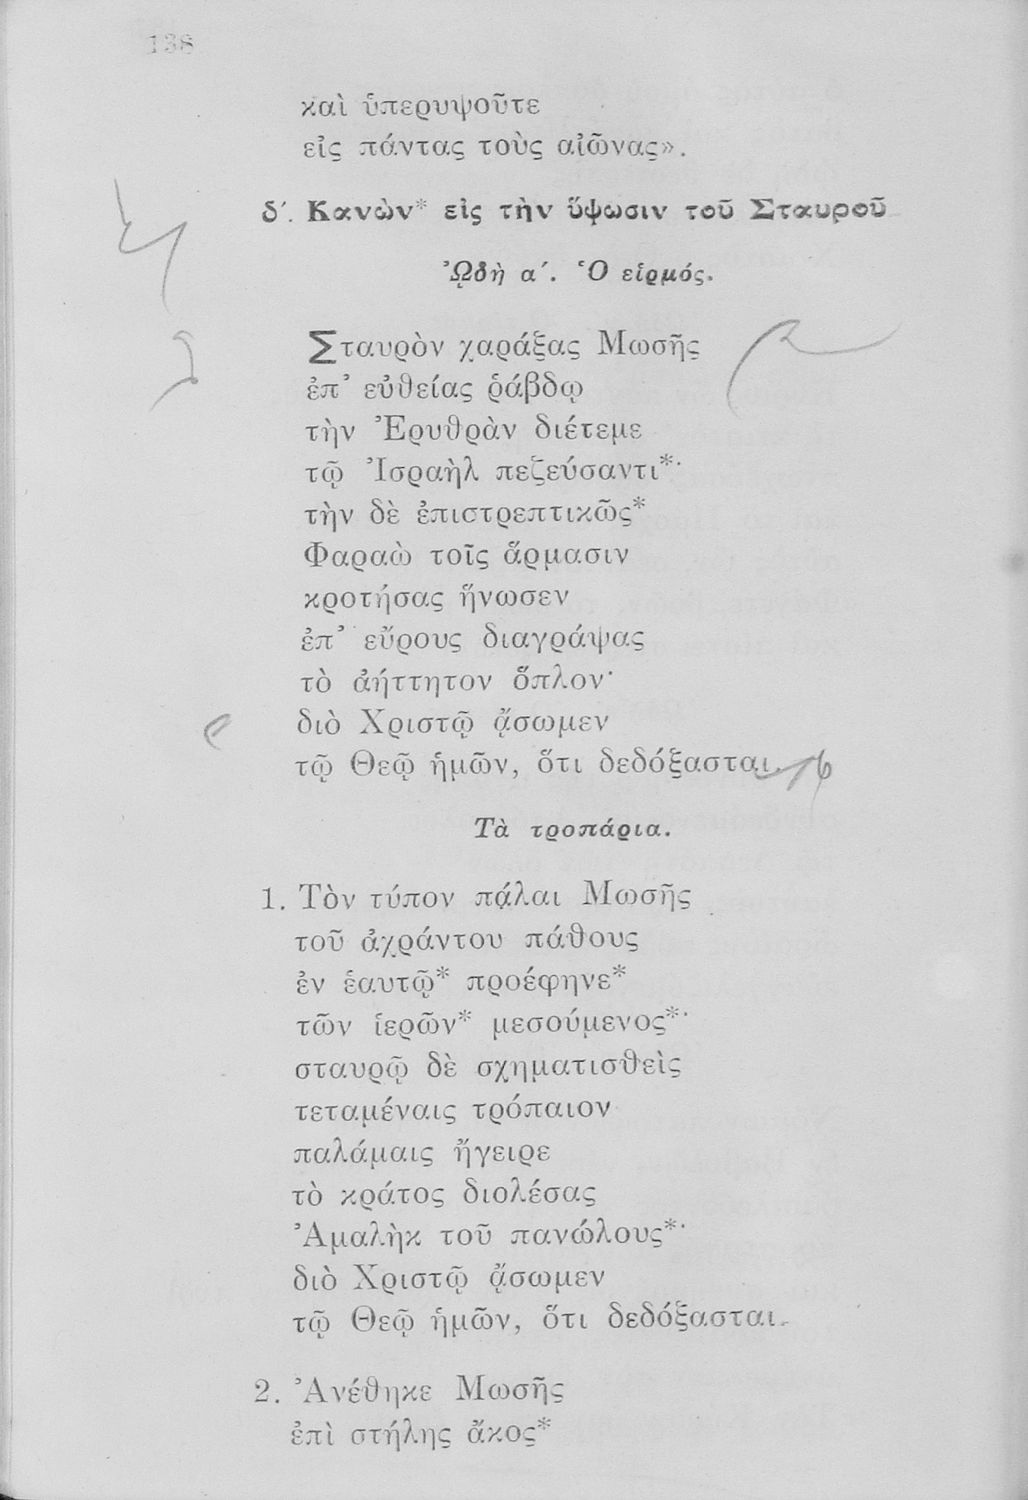 138
καὶ ὑπερυψοῦτε
εἰς πάντας τοὺς αἰῶνας».
δ΄. Κανὼν* εἰς τὴν ὕψωσιν τοῦ Σταυροῦ
ᾨδὴ α΄. Ὁ εἱρμός.
Σταυρὸν χαράξας Μωσῆς
ἐπ’ εὐθείας ῥάβδῳ
τὴν Ἐρυθρὰν διέτεμε
τῷ Ἰσραὴλ πεζεύσαντι*·
τὴν δὲ ἐπιστρεπτικῶς*
Φαραὼ τοῖς ἅρμασιν
κροτήσας ἥνωσεν
ἐπ’ εὔρους διαγράψας
τὸ ἀήττητον ὅπλον·
διὸ Χριστῷ ᾄσωμεν
τῷ Θεῷ ἡμῶν, ὅτι δεδόξασται.
Τὰ τροπάρια.
1. Τὸν τύπον πάλαι Μωσῆς
τοῦ ἀχράντου πάθους
ἐν ἑαυτῷ* προέφηνε*
τῶν ἱερῶν* μεσούμενος*·
σταυρῷ δὲ σχηματισθεὶς
τεταμέναις τρόπαιον
παλάμαις ἤγειρε
τὸ κράτος διολέσας
Ἀμαλὴκ τοῦ πανώλους*·
διὸ Χριστῷ ᾄσωμεν
τῷ Θεῷ ἡμῶν, ὅτι δεδόξασται.
2. Ἀνέθηκε Μωσῆς
ἐπὶ στήλης ἄκος*